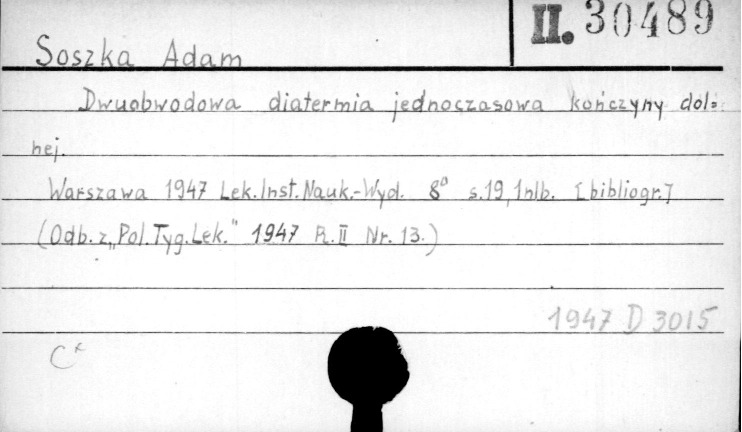 II. 30489
Soszka Adam
Dwuobwodowa diatermia jednoczasowa kończyny dol=
nej.
Warszawa 1947 Lek.Inst.Nauk.-Wyd. 8° s.19,1nlb. [bibliogr.]
(Odb. z „Pol.Tyg.Lek." 1947 R.II Nr. 13.)
1947 D 3015